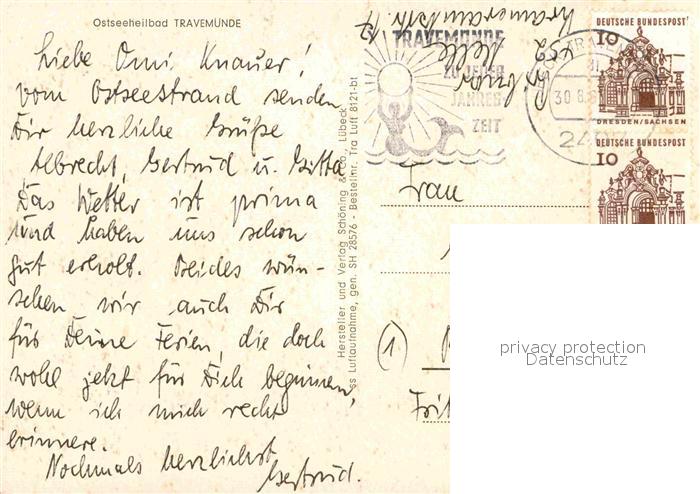 Ostseeheilbad TRAVEMÜNDE
Liebe Omi Knauer!
vom Ostseestrand senden
Dir herzliche Grüße
Albrecht, Gertrud u. Gitta
Das Wetter ist prima
und haben uns schon
gut erholt. Beides wün-
schen wir auch Dir
für Deine Ferien, die doch
wohl jetzt für Dich beginnen,
wenn ich mich recht
erinnere.
Nochmals herzlichst
Gertrud.
Hersteller und Verlag Schöning & Co., Lübeck
ss Luftaufnahme, gen. SH 28576 - Bestellnr. Tra Luft 8121-bt
TRAVEMÜNDE
ZU JEDER
JAHRES
ZEIT
30.8.
24
DEUTSCHE BUNDESPOST
10
DRESDEN/SACHSEN
DEUTSCHE BUNDESPOST
10
452 Melle
Frau
(1)
privacy protection
Datenschutz